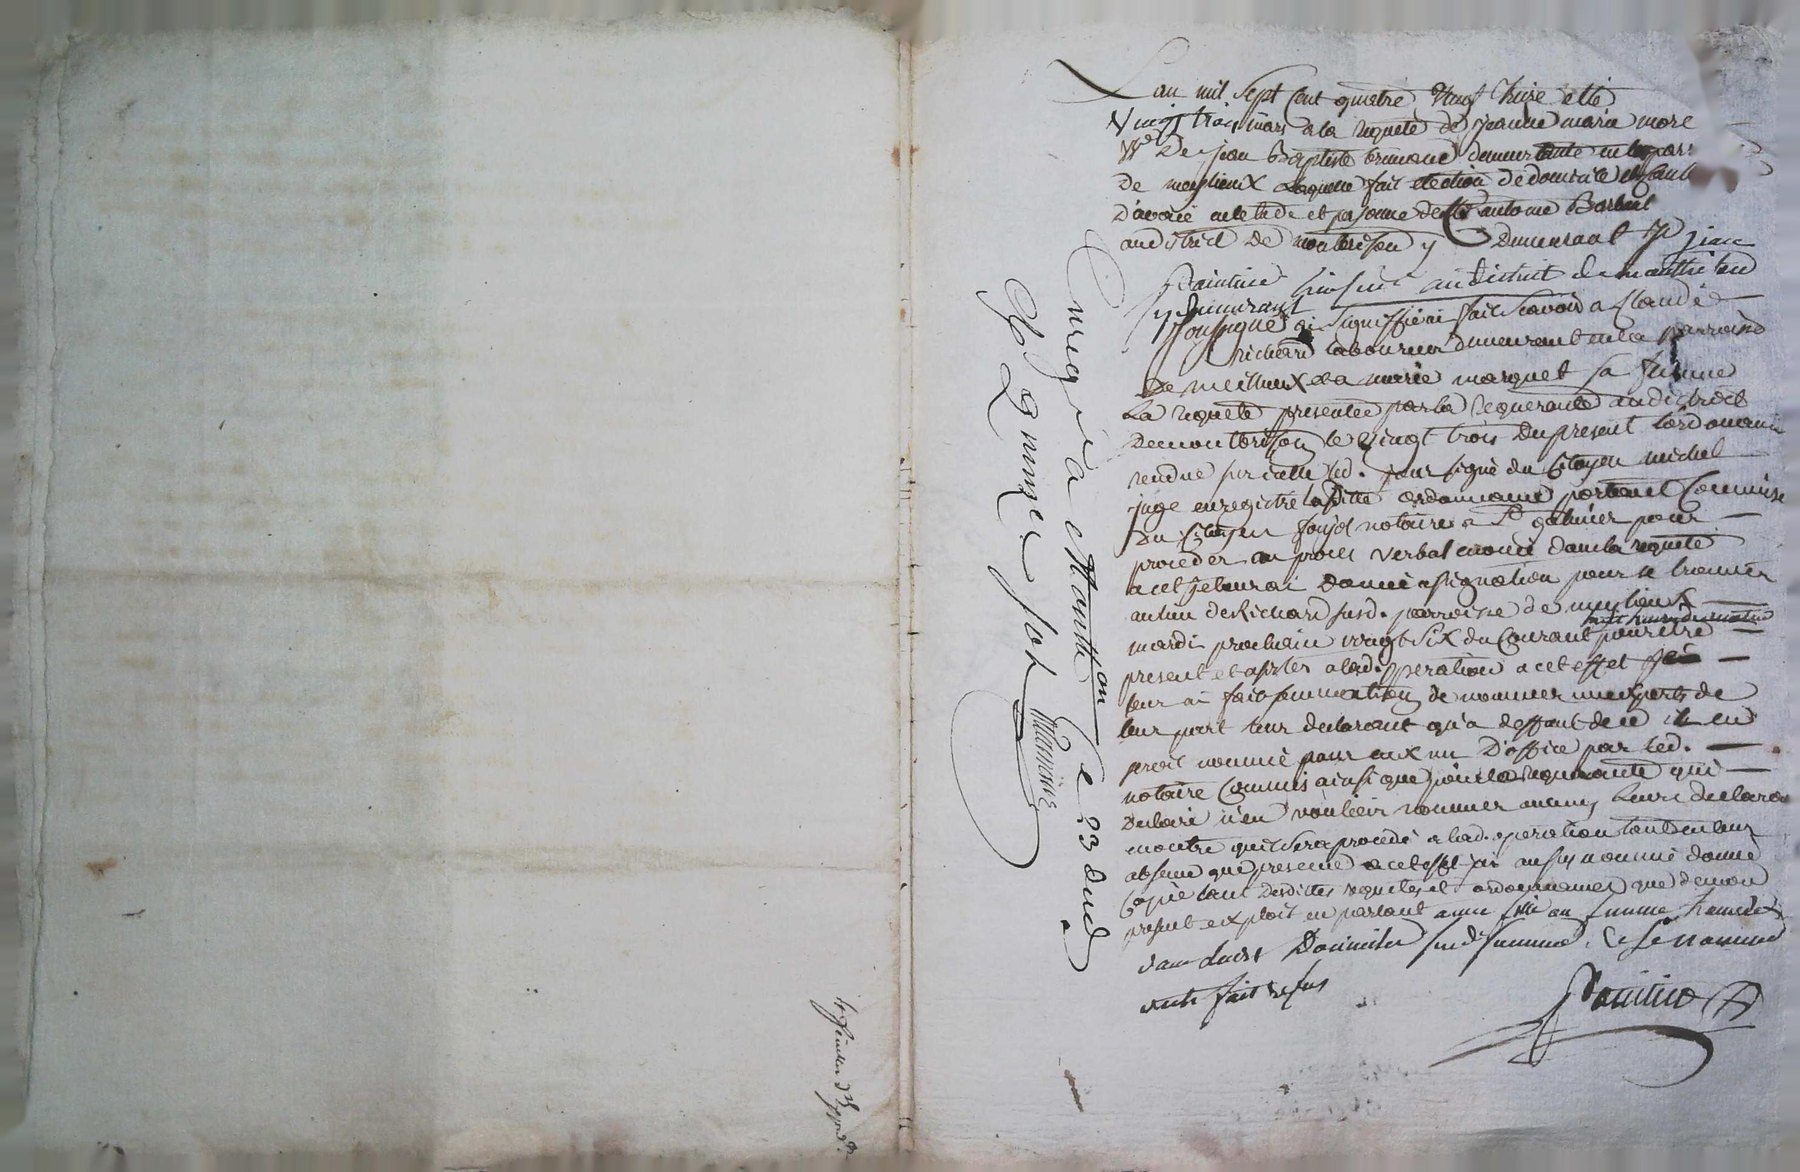 Lan mil sept Cent quatre Vingt treize et le
Vingt trois mars a la requete de jeanne marie more
Ve De jean Baptiste demeurante en la par
De meylieux laquelle fait election de domicile
D'avoué en letude et personne de antoine Barban
au district De montbrison y Demeurant jean
Painture huissier au district de montbrison
y Demeurant
soussigné ai signiffié fait scavoir a Claude
richard laboureur demeurant en la parroisse
De meillieux et a marie marquet sa femme
La requete presentée par la requerante au district
De montbrison le vingt trois du present lordonnance
rendue sur icelle led. jour signé du Citoyen michel
juge enregistré laditte ordonnance portant Commise
Du Citoyen notaire a St galmier pour
proceder au procès verbal enoncé dans la requete
a cet je leur ai donné assignation pour se trouver
au lieu de Richard susd. parroisse de meylieux
mardi prochain vingt six du Courant pour etre
present et assister a lad. opperation a cet effet
leur ai fait sommation de nommer un expert de
leur part leur declarant qu'a deffaut de ce il en
seroit nommé pour eux un D'office par led.
notaire Commis ainsi que pour la requerante qui
Declare n'en vouloir nommer aucun, leur declarant
en outre qu'il sera procédé a lad. operation tant en leur
absence que presence a cet effet jai au sus nommé donné
Copie tant desdittes requetes et ordonnances que de mon
present exploit en parlant a une fille ou femme trouvée
dans leurs Domicile sus d. sommé de se nommer
fait refus
Enregé a Montbon le 23 dud
R quinze sols